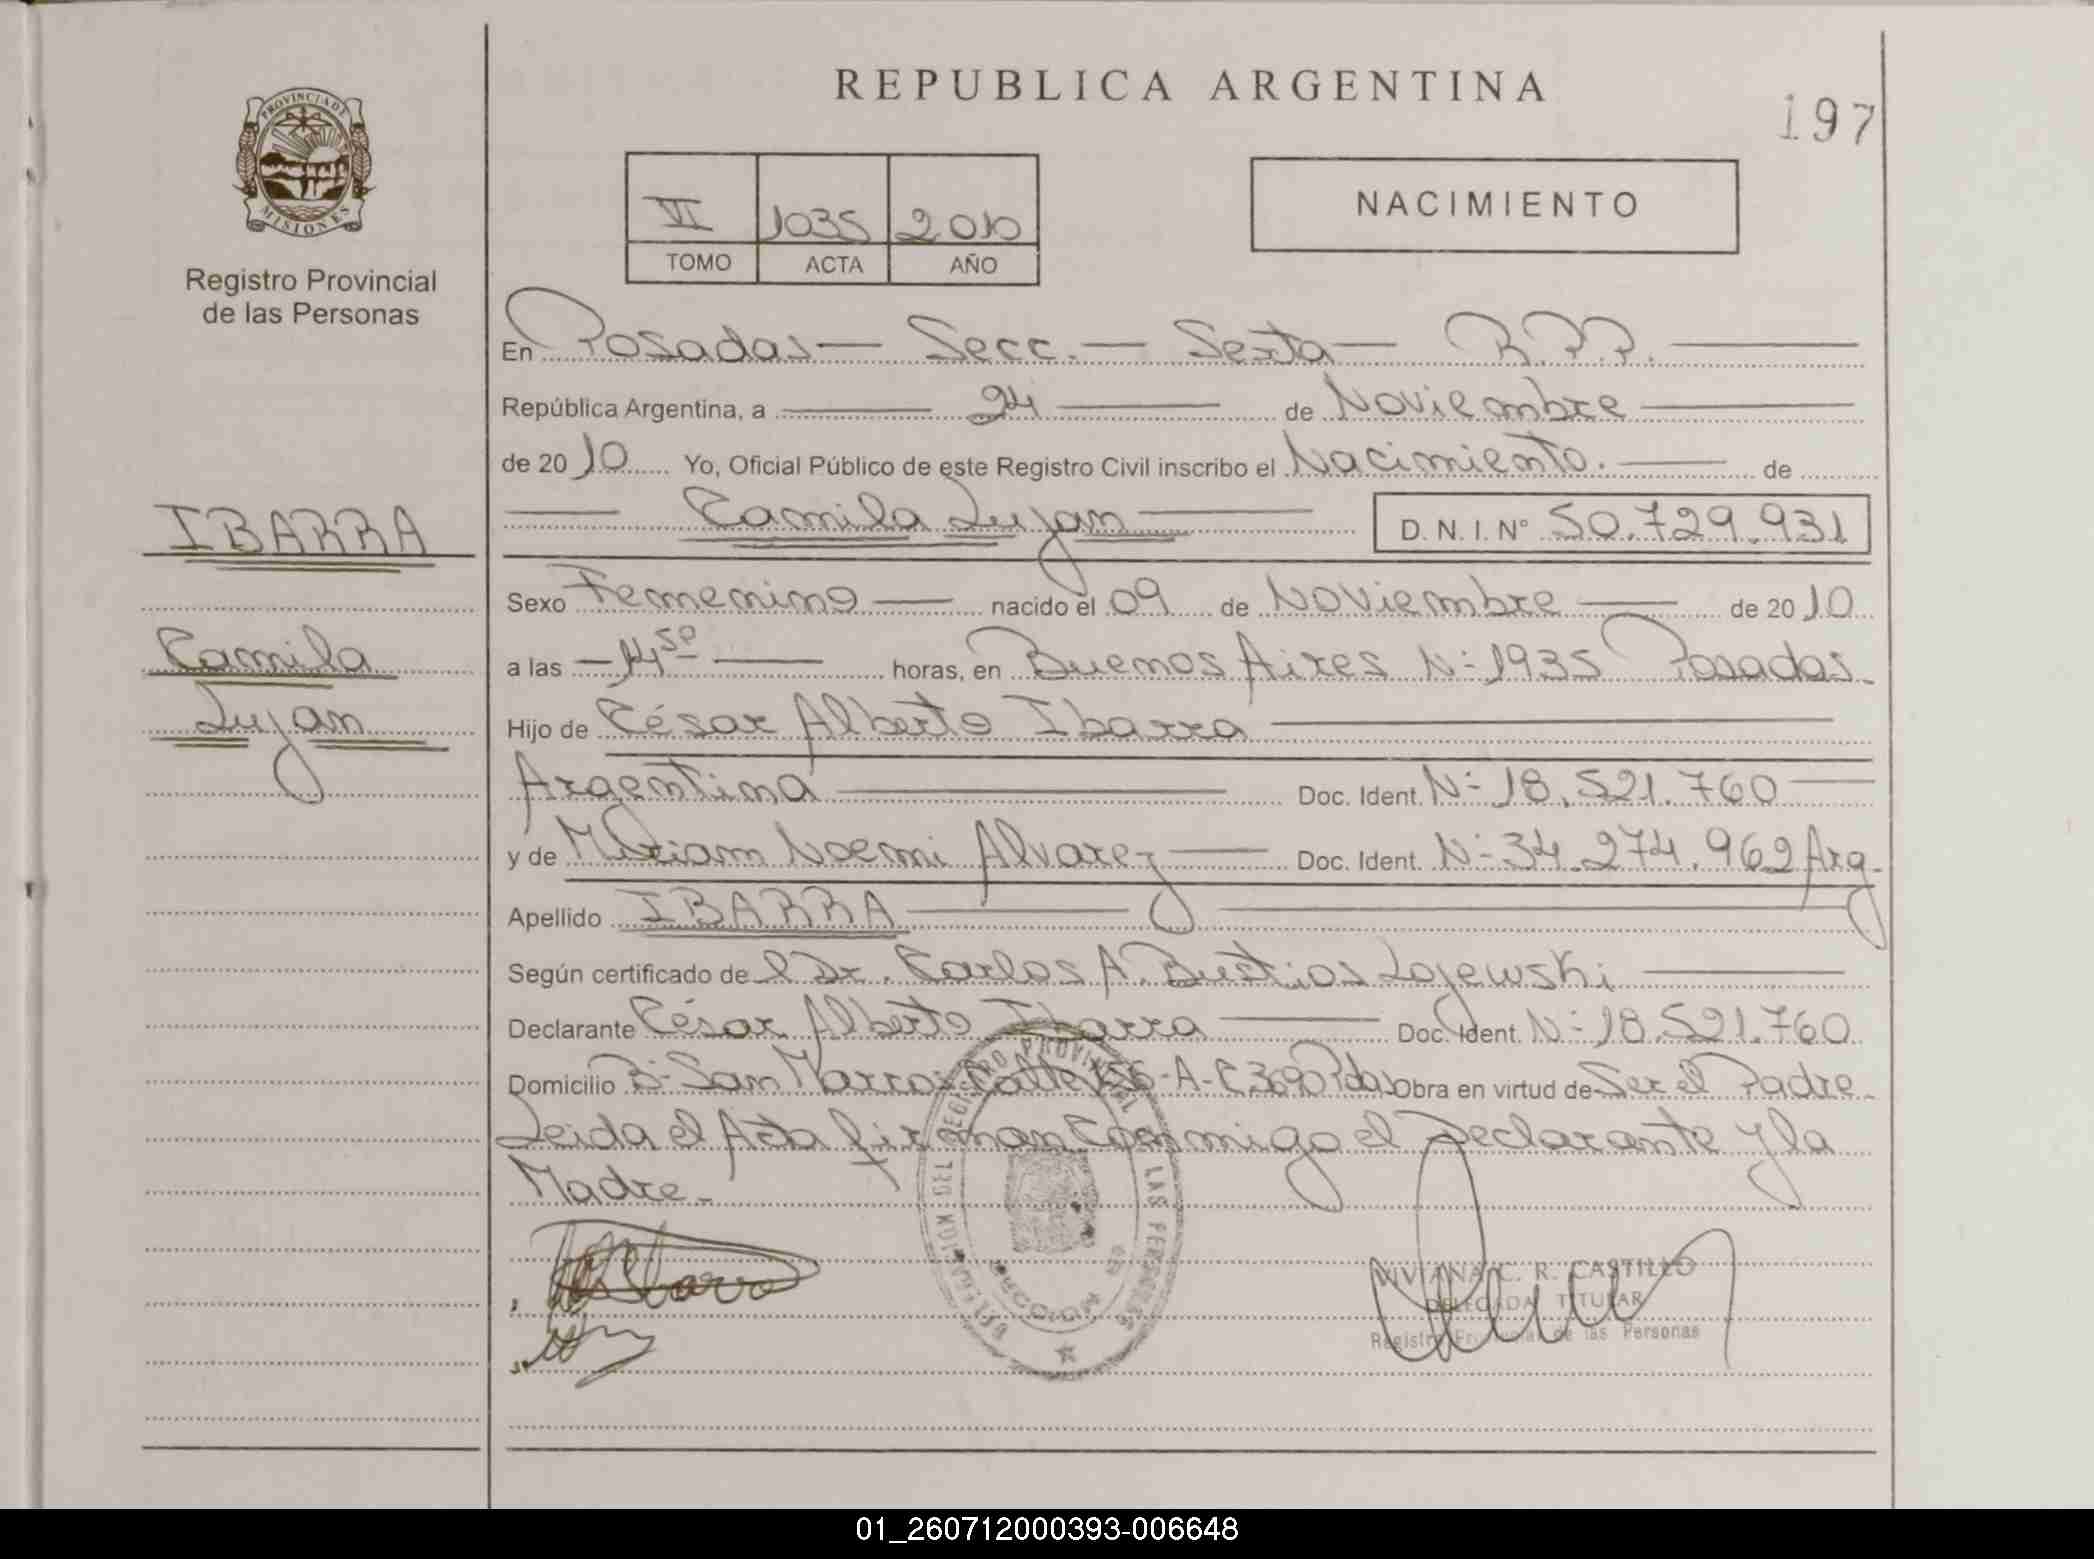 REPUBLICA ARGENTINA
197
PROVINCIA DE
MISIONES
Registro Provincial
de las Personas
VI 1035 2010
TOMO ACTA AÑO
NACIMIENTO
En Posadas — Secc. — Sexta — R.P.P.
República Argentina, a 24 de Noviembre
de 2010 Yo, Oficial Público de este Registro Civil inscribo el Nacimiento. de
Camila Lujan D. N. I. Nº 50.729.931
IBARRA
Camila
Lujan
Sexo Femenino nacido el 09 de Noviembre de 2010
a las 14 50 horas, en Buenos Aires Nº 1935 Posadas.
Hijo de César Alberto Ibarra
Argentina Doc. Ident. Nº 18.521.760
y de Miriam Noemi Alvarez Doc. Ident. Nº 34.274.962 Arg.
Apellido IBARRA
Según certificado de l Dr. Carlos A. Bustios Lojewski
Declarante César Alberto Ibarra Doc. Ident. Nº 18.521.760
Domicilio Bº San Marcos Calle 156-A-C.3690 Pdas Obra en virtud de Ser el Padre.
Leida el Acta firman Conmigo el Declarante y la
Madre.
VIVIANA C. R. CASTILLO
DELEGADA TITULAR
Registro Provincial de las Personas
01_260712000393-006648